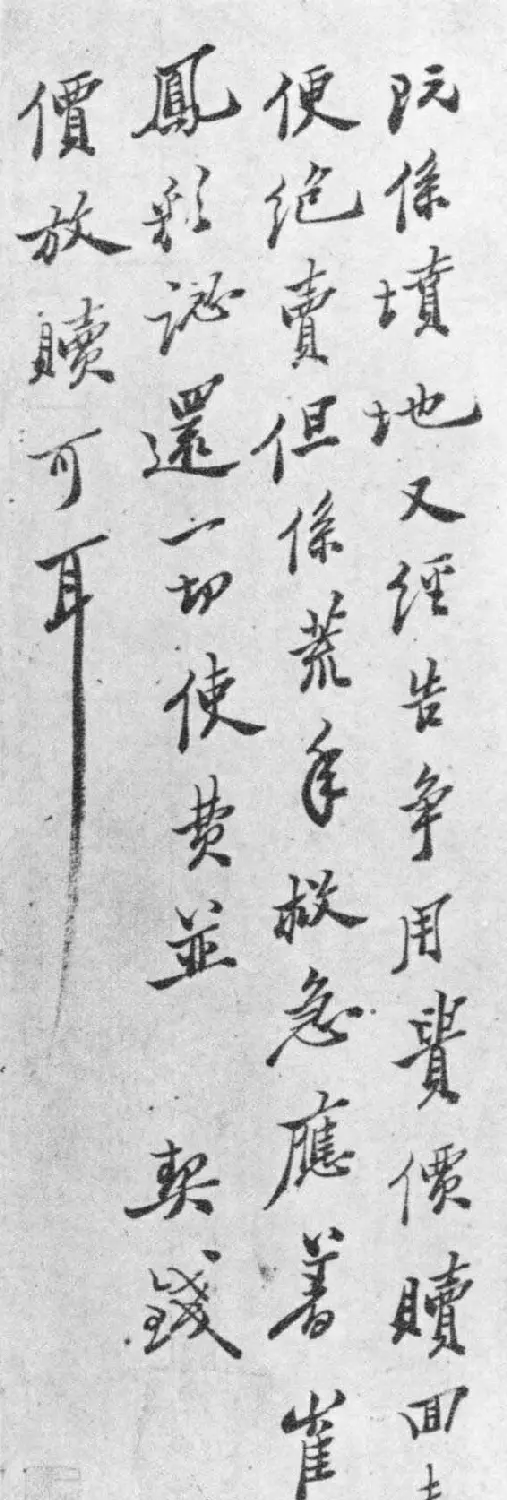 既係墳地又經告爭用貴價贖回
便絕賣但係荒年救急應着崔
鳳彩認還一切使費並 契錢
價放贖可耳